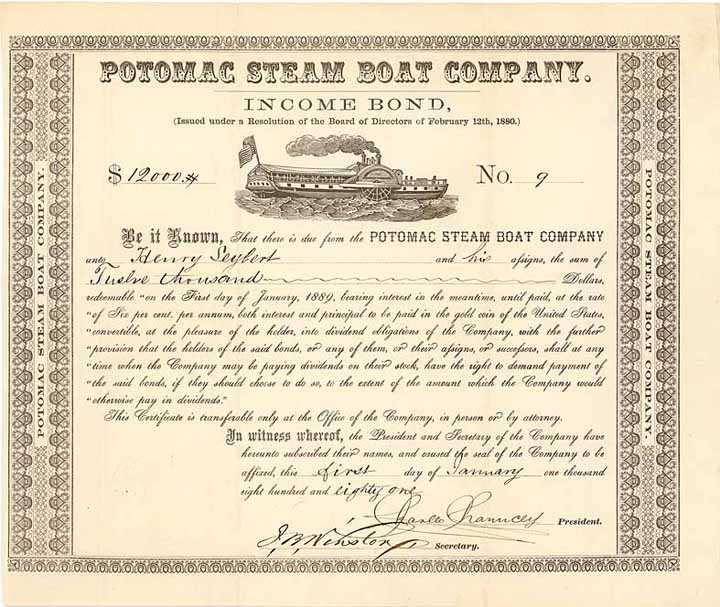 POTOMAC STEAM BOAT COMPANY.
INCOME BOND,
(Issued under a Resolution of the Board of Directors of February 12th, 1880.)
$ 12000.
No. 9
Be it Known, That there is due from the POTOMAC STEAM BOAT COMPANY
unto Henry Seybert and his assigns, the sum of
Twelve thousand Dollars,
redeemable "on the First day of January, 1889, bearing interest in the meantime, until paid, at the rate
"of Six per cent. per annum, both interest and principal to be paid in the gold coin of the United States,
"convertible, at the pleasure of the holder, into dividend obligations of the Company, with the further
"provision that the holders of the said bonds, or any of them, or their assigns, or successors, shall at any
"time when the Company may be paying dividends on their stock, have the right to demand payment of
"the said bonds, if they should choose to do so, to the extent of the amount which the Company would
"otherwise pay in dividends."
This Certificate is transferable only at the Office of the Company, in person or by attorney.
In witness whereof, the President and Secretary of the Company have
hereunto subscribed their names, and caused the seal of the Company to be
affixed, this first day of January one thousand
eight hundred and eighty one
Charles Chauncey President.
J. B. Winston Secretary.
POTOMAC STEAM BOAT COMPANY.
POTOMAC STEAM BOAT COMPANY.